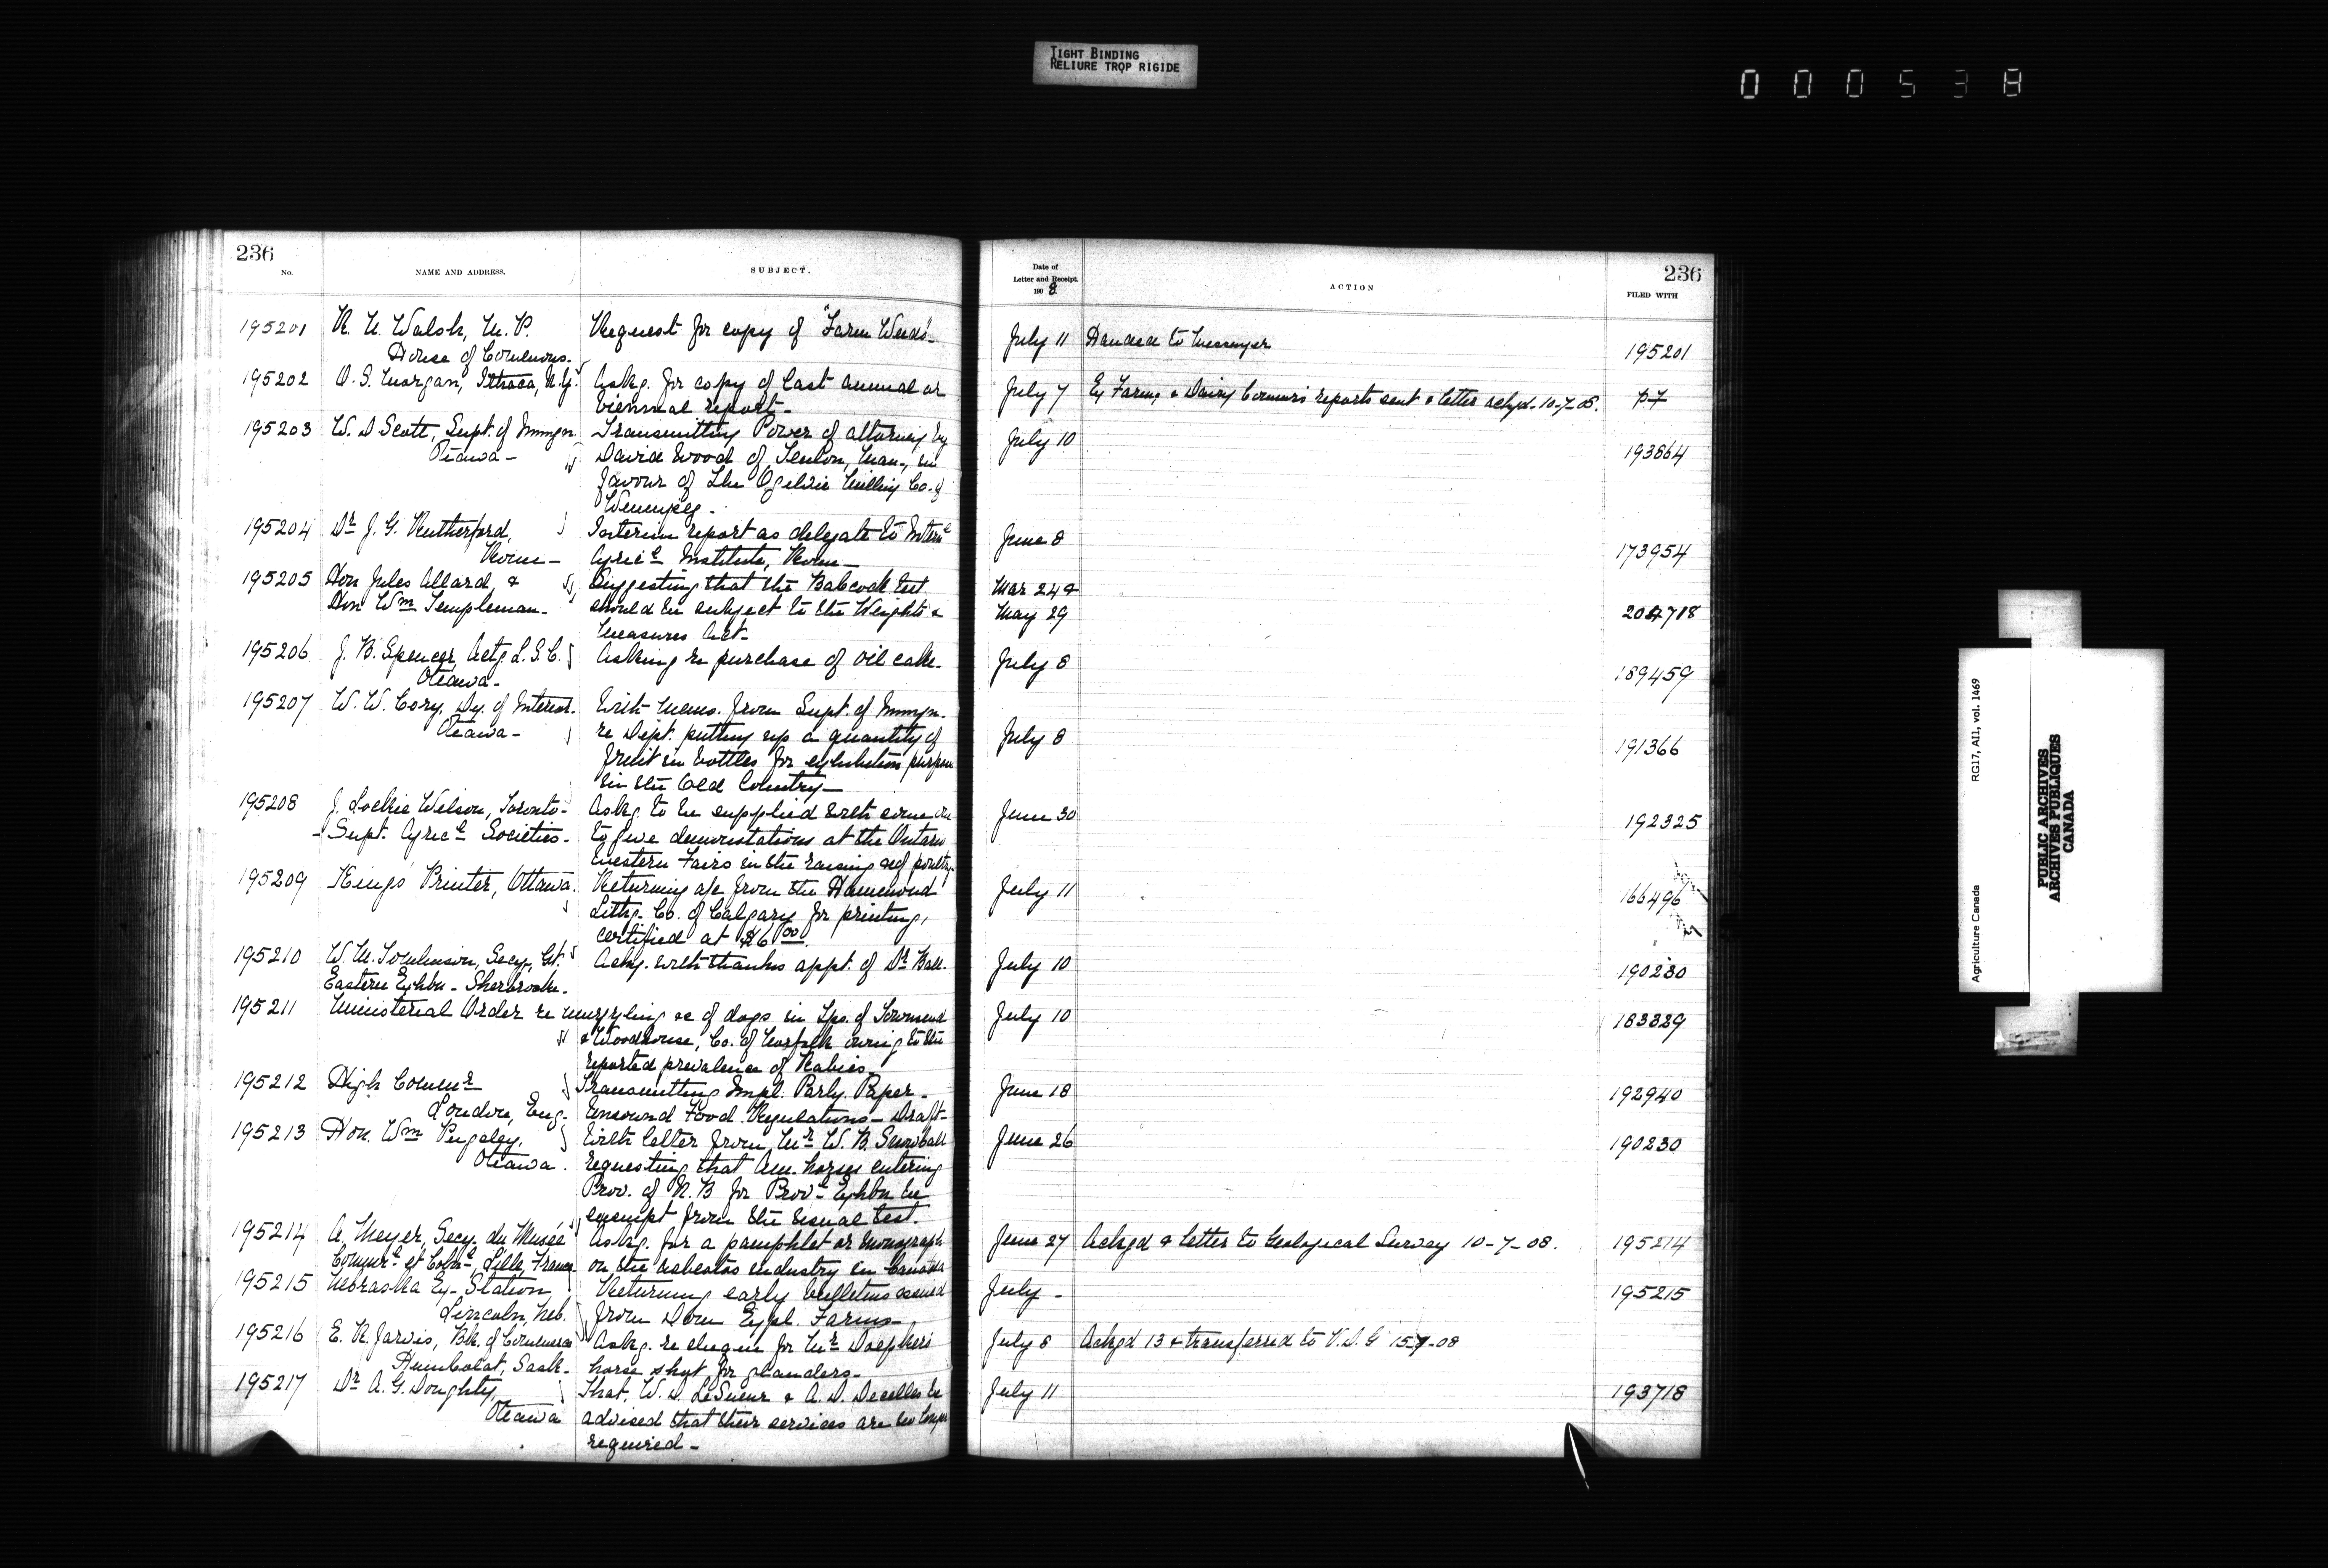 TIGHT BINDING
RELIURE TROP RIGIDE
000538
236
No.
NAME AND ADDRESS.
SUBJECT.
195201 R. N. Walsh, M. P. Request for copy of "Farm Weeds"-
House of Commons.
195202 O. S. Morgan, Ithaca, N.Y. Askg. for copy of last annual or
biennial report-
195203 W. D Scott, Supt. of Immgn Transmitting Power of attorney by
Ottawa - David Wood of Tenlon, Man., in
favour of The Ogilvie Milling Co. of
Winnipeg.
195204 Dr J. G. Rutherford, Interim report as delegate to Internl
Rome- Agricl Institute, Rome-
195205 Hon Jules Allard, & Suggesting that the Babcock test
Hon Wm Templeman. should be subject to the Weights &
Measures Act-
195206 J. B. Spencer, Actg L. S. C. Asking re purchase of oil cake.
Ottawa-
195207 W. W. Cory. Dy. of Interior. With memo. from Supt. of Immgn.
Ottawa- re Dept. putting up a quantity of
fruit in bottles for exhibition purposes
in the Old Country-
195208 J. Lockie Wilson, Toronto- Askg. to be supplied with some one
- Supt. Agricl Societies. to give demonstations at the Ontario
Western Fairs in the raising of poultry.
195209 King's Printer, Ottawa. Returning a/c from the Hammond
Lithg. Co. of Calgary for printing,
certified at $6 00.
195210 W. M. Tomlinson, Secy, Gt. Ackg. with thanks appt. of Dr Hall.
Eastern Exhbn - Sherbrooke.
195211 Ministerial Order re muzzling of dogs in Tps. of Townsend
& Woodhouse, Co. of Norfolk owing to the
reported prevalence of Rabies-
195212 High Commr Transmitting Impl. Parly. Paper.
London, Eng. Unsound Food Regulations - Draft-
195213 Hon. Wm Pugsley. With letter from Mr W. B. Snowball
Ottawa. requesting that Am. horses entering
Prov. of N. B for Provl Exhbn be
exempt from the usual test.
195214 A. Meyer, Secy. du Musée Askg. for a pamphlet or monograph
Commrl et Colnl, Lille, France on the asbestos industry in Canada
195215 Nebraska Ex- Station Returning early bulletins issued
Lincoln, Neb. from Dom Expl. Farms-
195216 E. R. Jarvis, Bk. of Commerce Askg. re cheque for Mr Doepkers
Humboldt, Sask- horse shot for glanders.
195217 Dr A. G. Doughty, That, W. D. LeSueur & A. D. Decelles be
Ottawa advised that their services are no longer
required-
236
Date of
Letter and Receipt.
190 8.
ACTION
FILED WITH
July 11 Handed to Messenger 195201
July 7 Ex Farms & Dairy Commr's reports sent & letter ackgd. 10-7-08. P7
July 10 193864
June 8 173954
Mar 24 &
May 29 204718
July 8 189459
July 8 191366
June 30 192325
July 11 166496
July 10 190230
July 10 183389
June 18 192940
June 26 190230
June 27 Ackgd & letter to Geological Survey 10-7-08. 195214
July - 195215
July 8 Ackgd 13 & transferred to V. D. G 15-7-08
July 11 193718
Agriculture Canada RG17, AI1, vol. 1469
PUBLIC ARCHIVES
ARCHIVES PUBLIQUES
CANADA